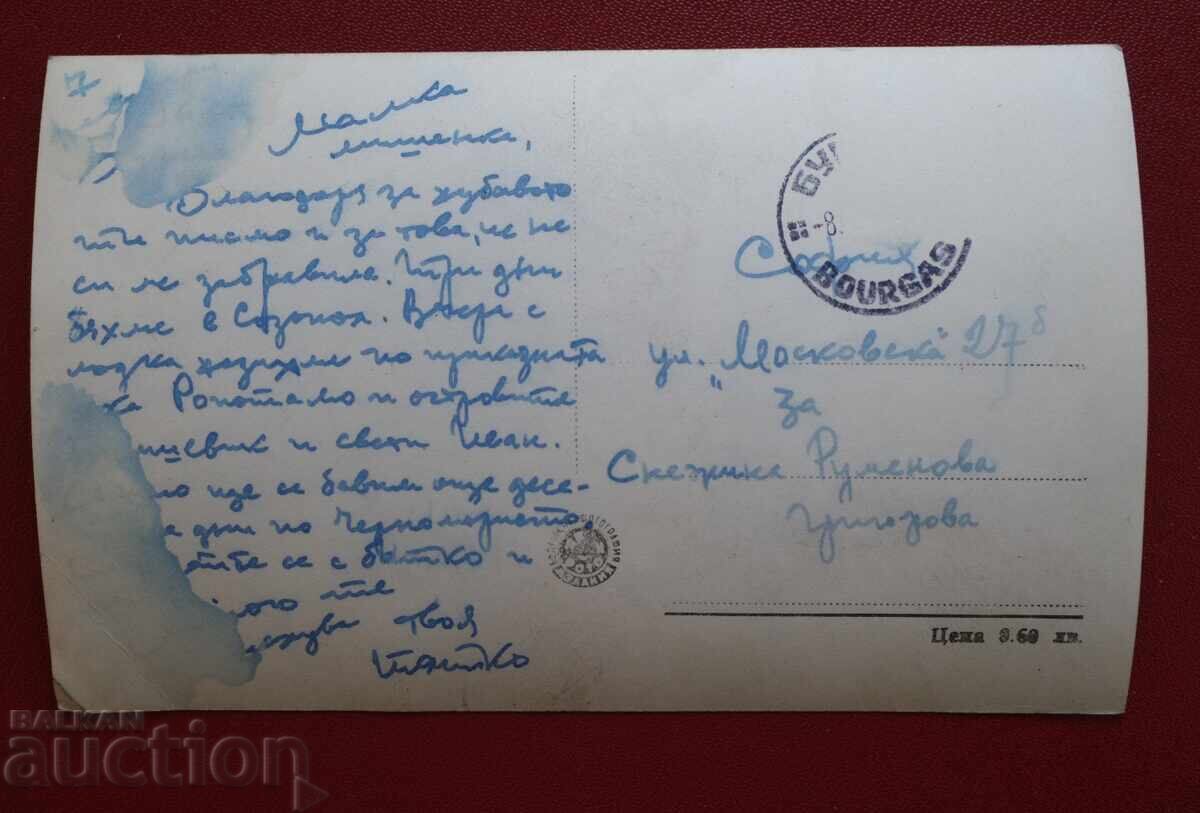 7
Малка
мишенка,
Благодаря за хубавото
ти писмо и за това, че не
си ме забравила. Три дни
бяхме в Созопол. Вчера с
лодка ходихме по приказната
Ропотамо и островите
и свети Иван.
ще се бавим още десе-
дни по Черноморието,
се с батко и
те
твоя
татко
БУ
-8.
BOURGAS
София
ул. "Московска" 27б
за
Снежинка Руменова
Григорова
Цена 0.60 лв.
BALKAN
auction